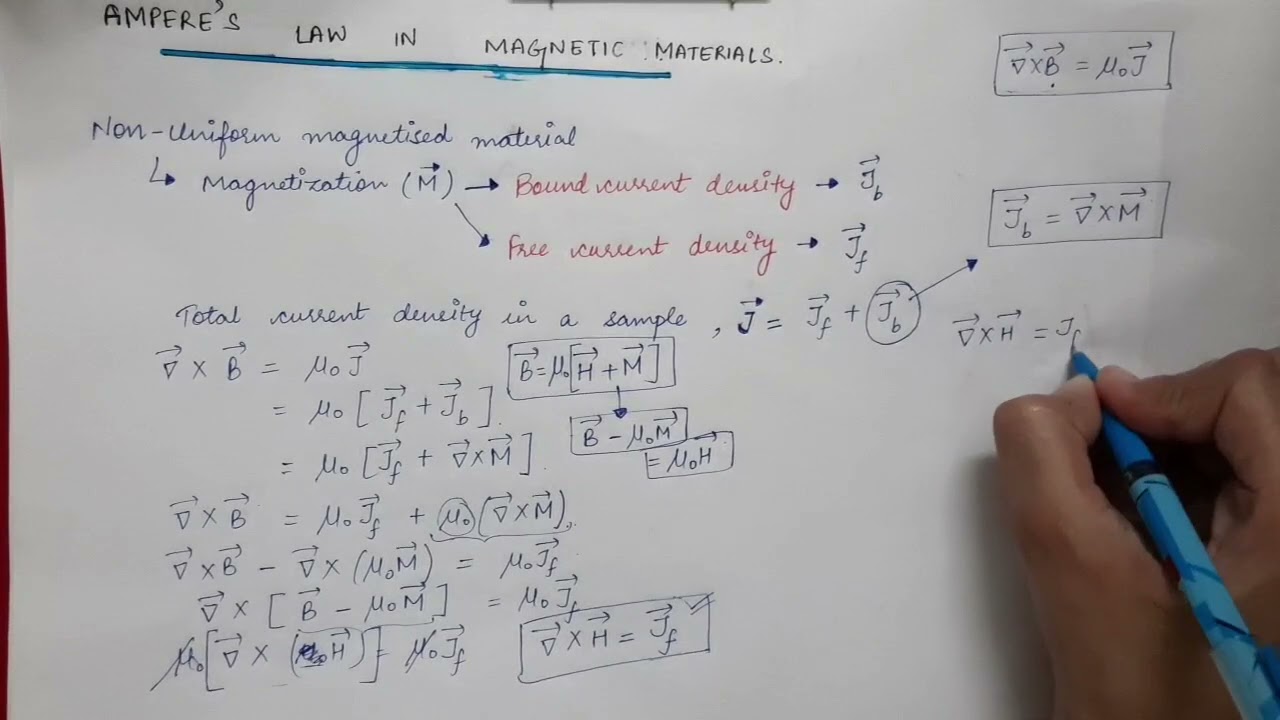 AMPERE'S LAW IN MAGNETIC MATERIALS.
∇⃗×B⃗ = μ₀J⃗
Non-uniform magnetised material
↳ Magnetization (M⃗) → Bound current density → J⃗_b
J⃗_b = ∇⃗×M⃗
Free current density → J⃗_f
Total current density in a sample, J⃗ = J⃗_f + J⃗_b
∇⃗×H⃗ = J_f
∇⃗ × B⃗ = μ₀J⃗
B⃗ = μ₀[H⃗ + M⃗]
= μ₀[J⃗_f + J⃗_b].
B⃗ - μ₀M⃗
= μ₀H⃗
= μ₀[J⃗_f + ∇⃗×M⃗].
∇⃗ × B⃗ = μ₀J⃗_f + μ₀(∇⃗×M⃗).
∇⃗×B⃗ - ∇⃗×(μ₀M⃗) = μ₀J⃗_f
∇⃗ × [B⃗ - μ₀M⃗] = μ₀J⃗_f
μ₀[∇⃗ × (H⃗)] = μ₀J⃗_f
∇⃗×H⃗ = J⃗_f